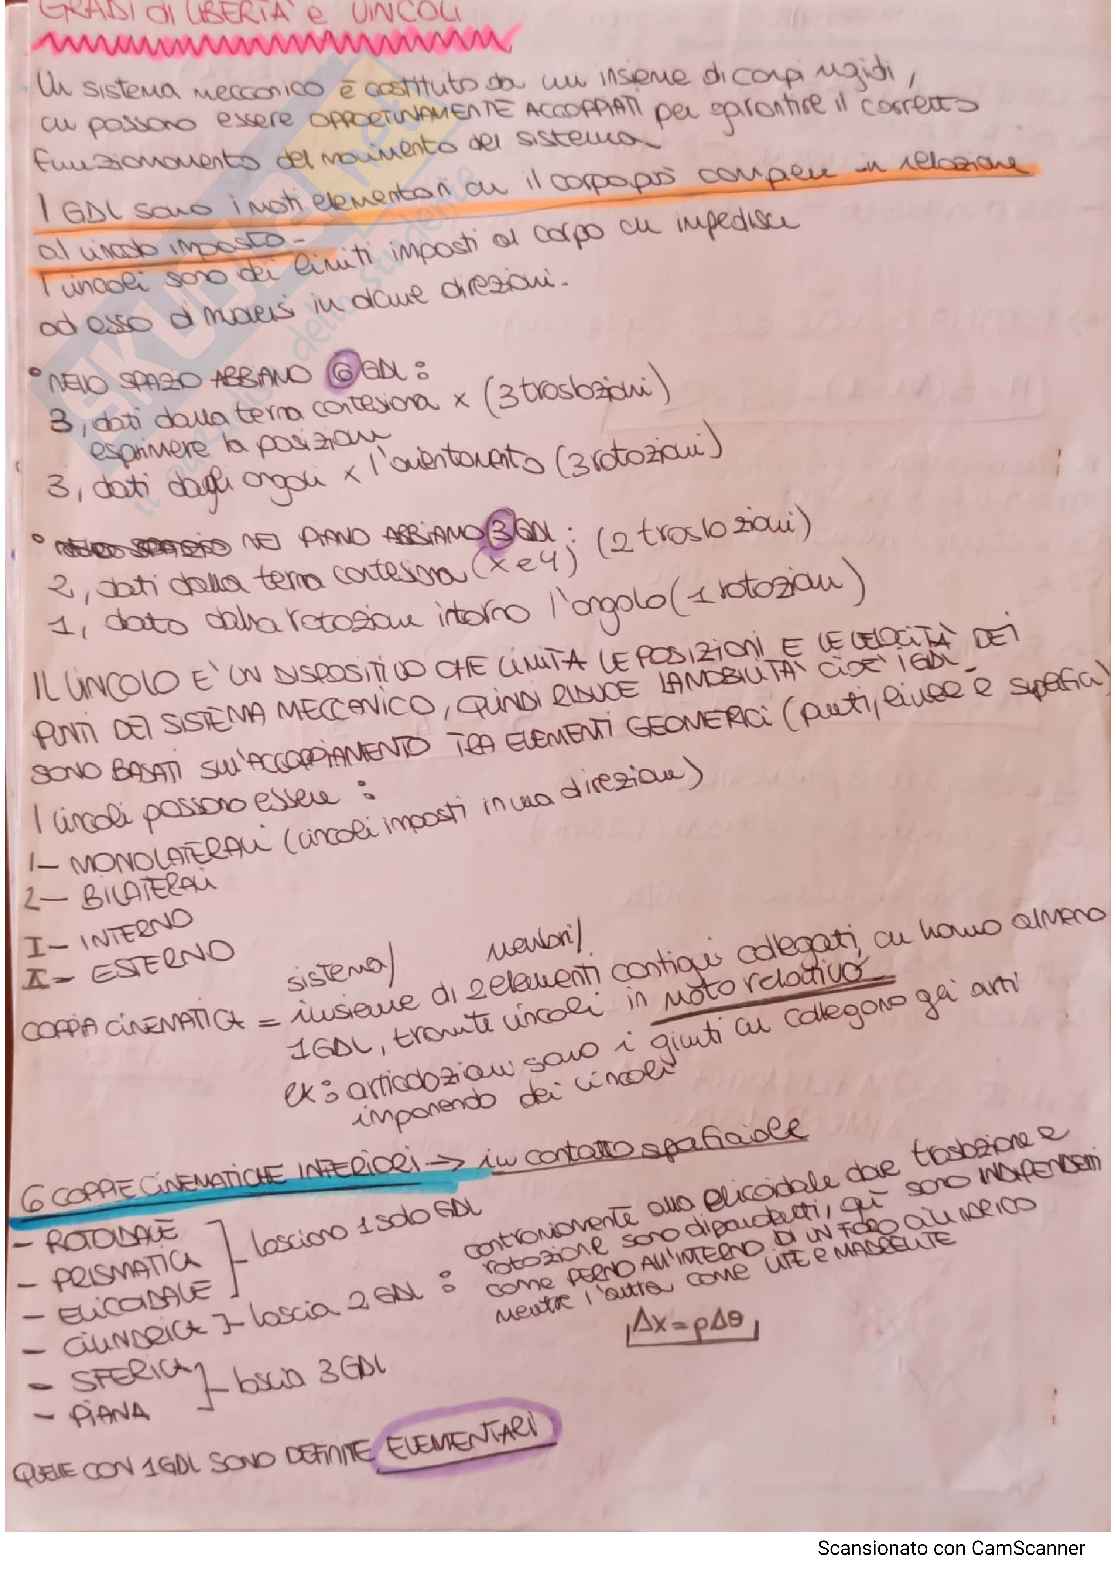 GRADI di LIBERTA' e VINCOLI
Un sistema meccanico è costituito da un insieme di corpi rigidi,
cui possono essere OPPORTUNAMENTE ACCOPPIATI per garantire il corretto
funzionamento del movimento del sistema
I GDL sono i moti elementari cui il corpo può compiere in relazione
al vincolo imposto-
I vincoli sono dei limiti imposti al corpo cui impedisce
ad esso di muoversi in alcune direzioni.
• NELLO SPAZIO ABBIAMO 6 GDL:
3, dati dalla terna cartesiana x (3 traslazioni)
esprimere la posizione
3, dati dagli angoli x l'orientamento (3 rotazioni)
• NEL PIANO ABBIAMO 3 GDL: (2 traslazioni)
2, dati dalla terna cartesiana (x e y)
1, dato dalla rotazione intorno l'angolo (1 rotazione)
IL VINCOLO E' UN DISPOSITIVO CHE LIMITA LE POSIZIONI E LE VELOCITÀ DEI
PUNTI DEI SISTEMA MECCANICO, QUINDI RIDUCE LA MOBILITÀ CIOE' I GDL-
SONO BASATI SULL'ACCOPPIAMENTO TRA ELEMENTI GEOMERICI (punti, linee e superfici)
I vincoli possono essere:
1- MONOLATERALI (vincoli imposti in una direzione)
2- BILATERALI
I- INTERNO
II- ESTERNO
sistema/ membri/
COPPIA CINEMATICA = insieme di 2 elementi contigui collegati, cui hanno almeno
1 GDL, tramite vincoli in moto relativo
ex: articolazioni sono i giunti cui collegano gli arti
imponendo dei vincoli
6 COPPIE CINEMATICHE INFERIORI → in contatto superficiale
- ROTOIDALE
- PRISMATICA } lasciano 1 solo GDL
- ELICOIDALE
- CILINDRICA }- lascia 2 GDL: contrariamente alla elicoidale dove traslazione e
rotazione sono dipendenti, qui sono INDIPENDENTI
come PERNO ALL'INTERNO DI UN FORO CILINDRICO
mentre l'altra come VITE e MADREVITE
Δx = pΔθ
- SFERICA } lascia 3 GDL
- PIANA
QUELLE CON 1 GDL SONO DEFINITE ELEMENTARI
Scansionato con CamScanner